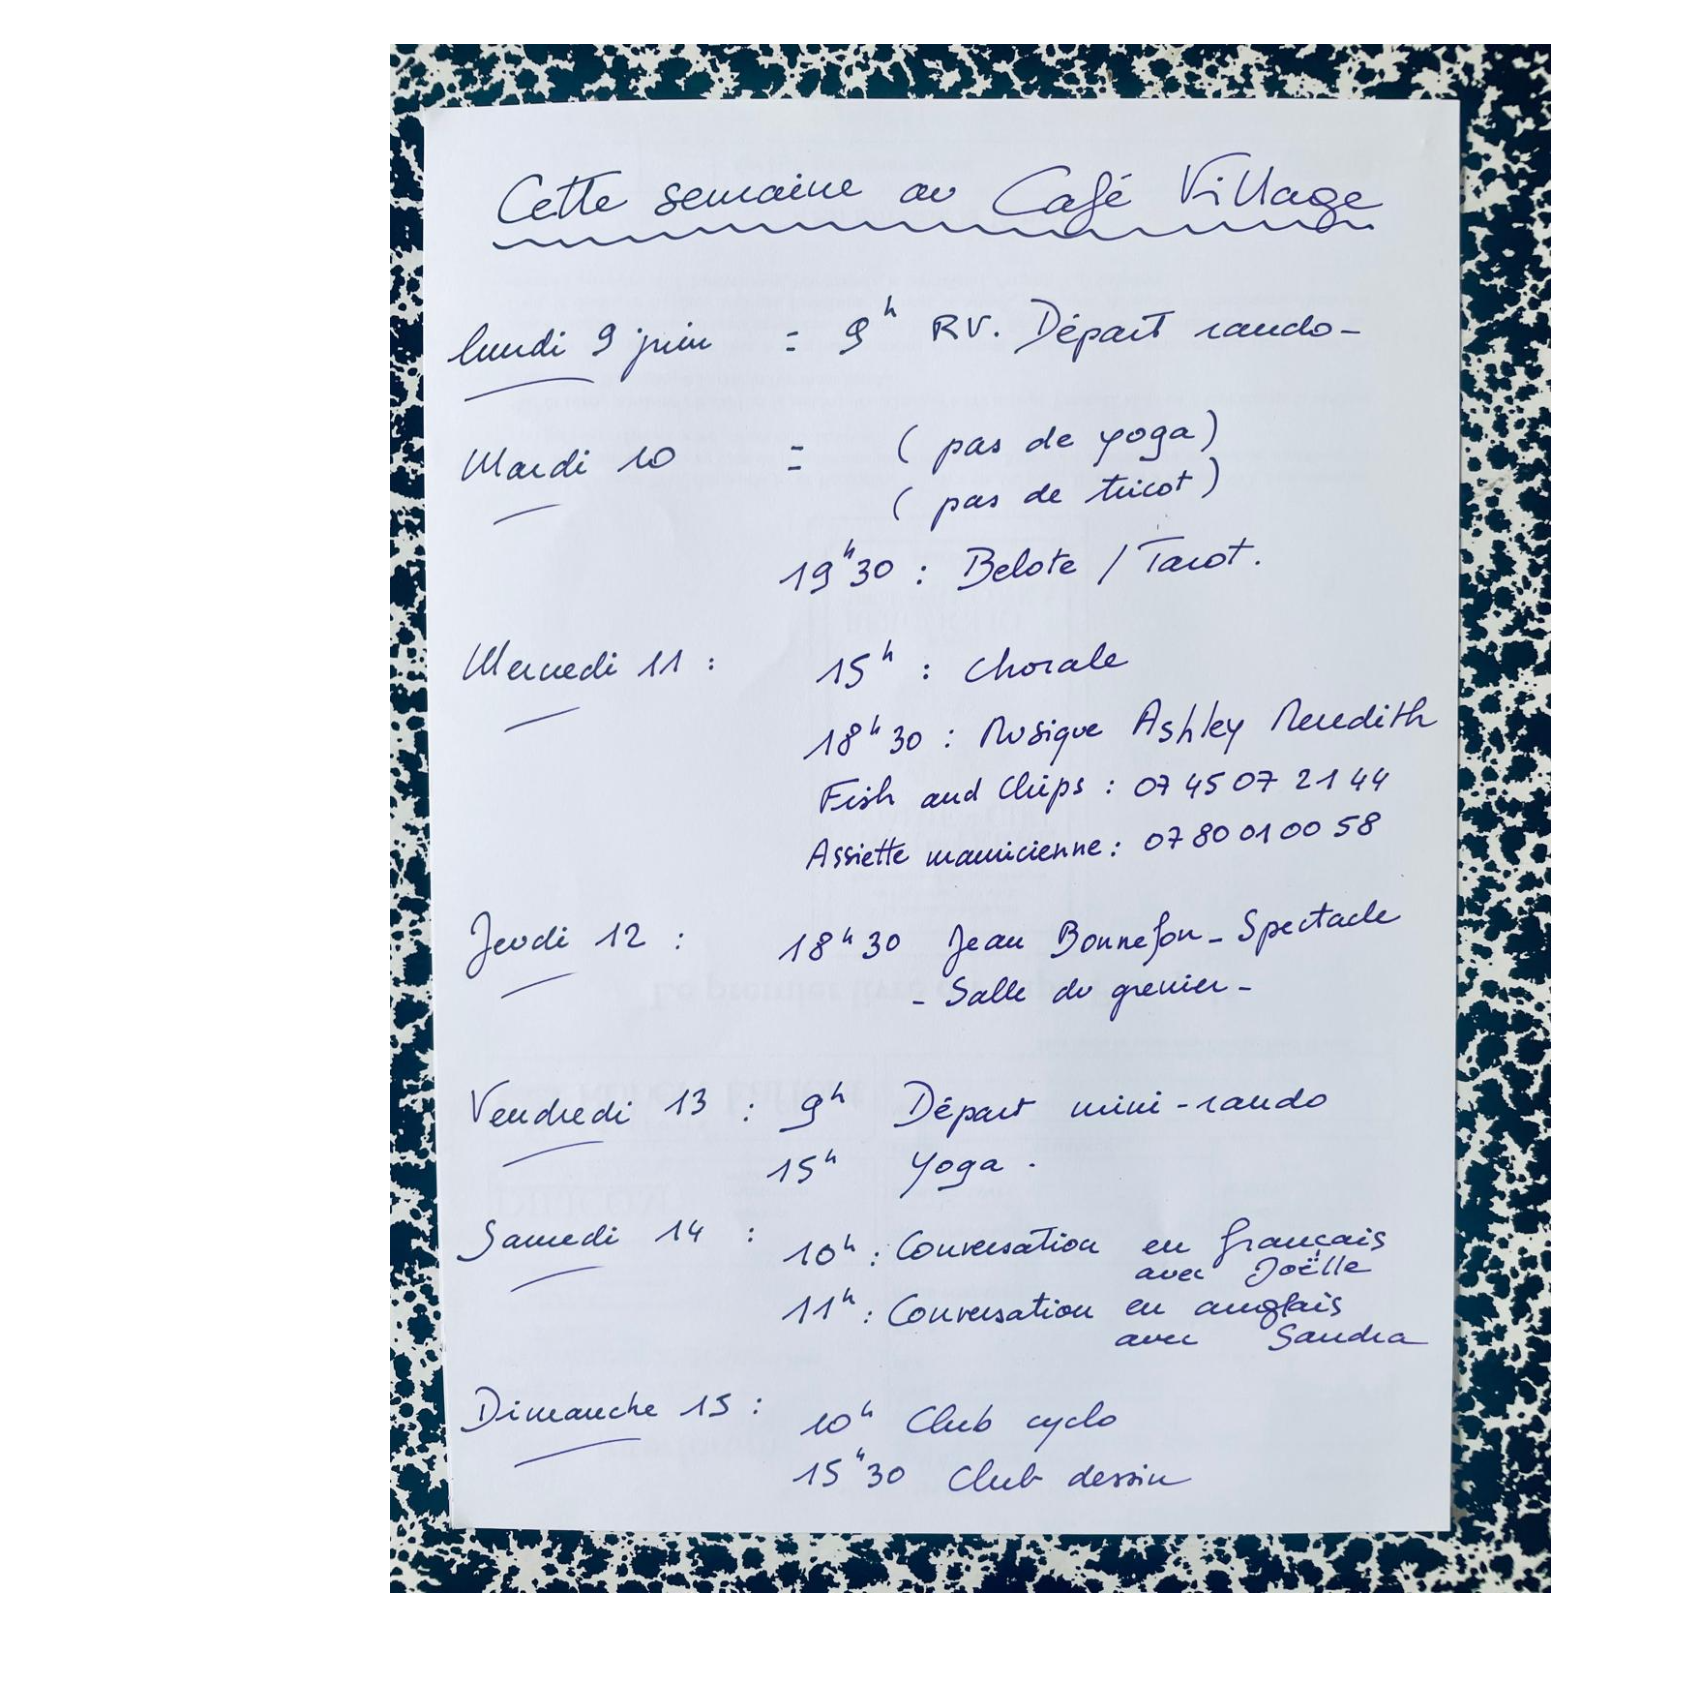 Cette semaine au Café Village
lundi 9 juin : 9h RV. Départ rando-
Mardi 10 : ( pas de yoga )
( pas de tricot )
19h30 : Belote / Tarot.
Mercredi 11 : 15h : Chorale
18h30 : Musique Ashley Meredith
Fish and Chips : 07 45 07 21 44
Assiette mauricienne : 07 80 01 00 58
Jeudi 12 : 18h30 Jean Bonnefon - Spectacle
- Salle du grenier -
Vendredi 13 : 9h Départ mini-rando
15h Yoga.
Samedi 14 : 10h : Conversation en français
avec Joëlle
11h : Conversation en anglais
avec Sandra
Dimanche 15 : 10h Club cyclo
15h30 Club dessin
Le premier livre